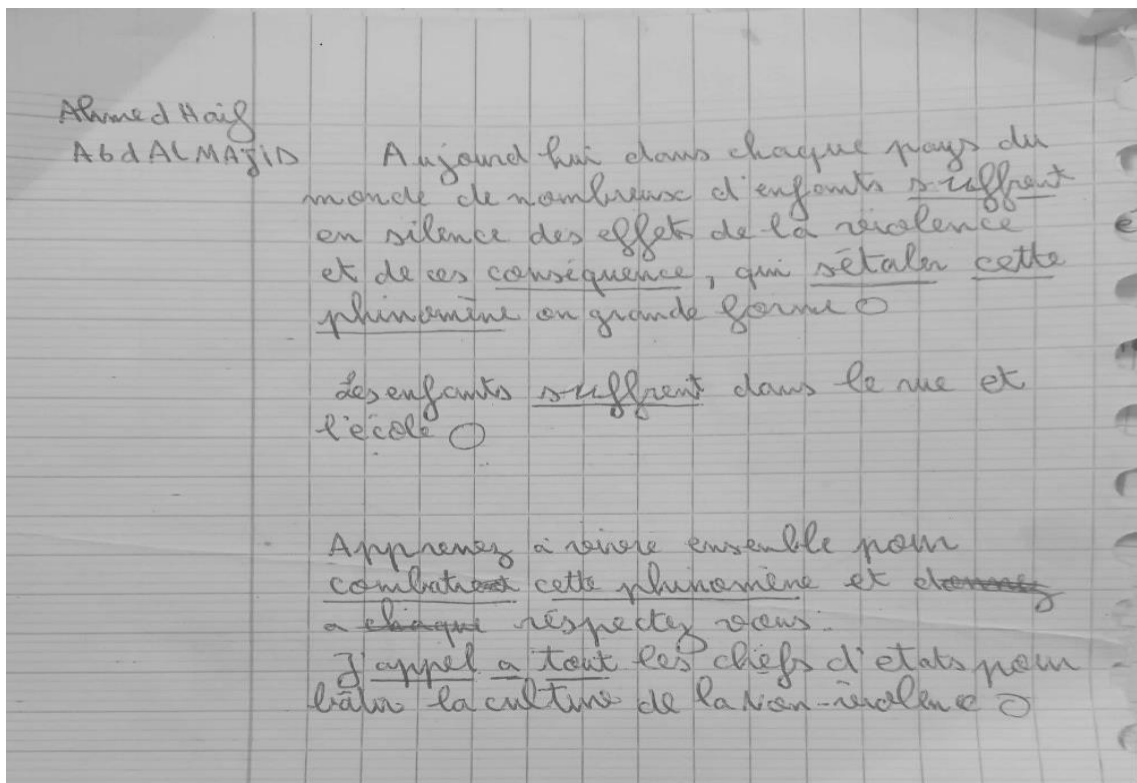 Ahmed Haif
Abd ALMAJID
Aujound hui dans chaque pays du
monde de nombreux d'enfants suffrent
en silence des effets de la violence
et de ces conséquence, qui s'étaler cette
phinomène en grande forme O
Les enfants suffrent dans le rue et
l'école O
Apprenez à vivre ensemble pour
combatre cette phinomène et donnez
a chaque réspectez vous.
J'appel a tout les chéfs d'etats pour
bâtir la culture de la Non-violence O